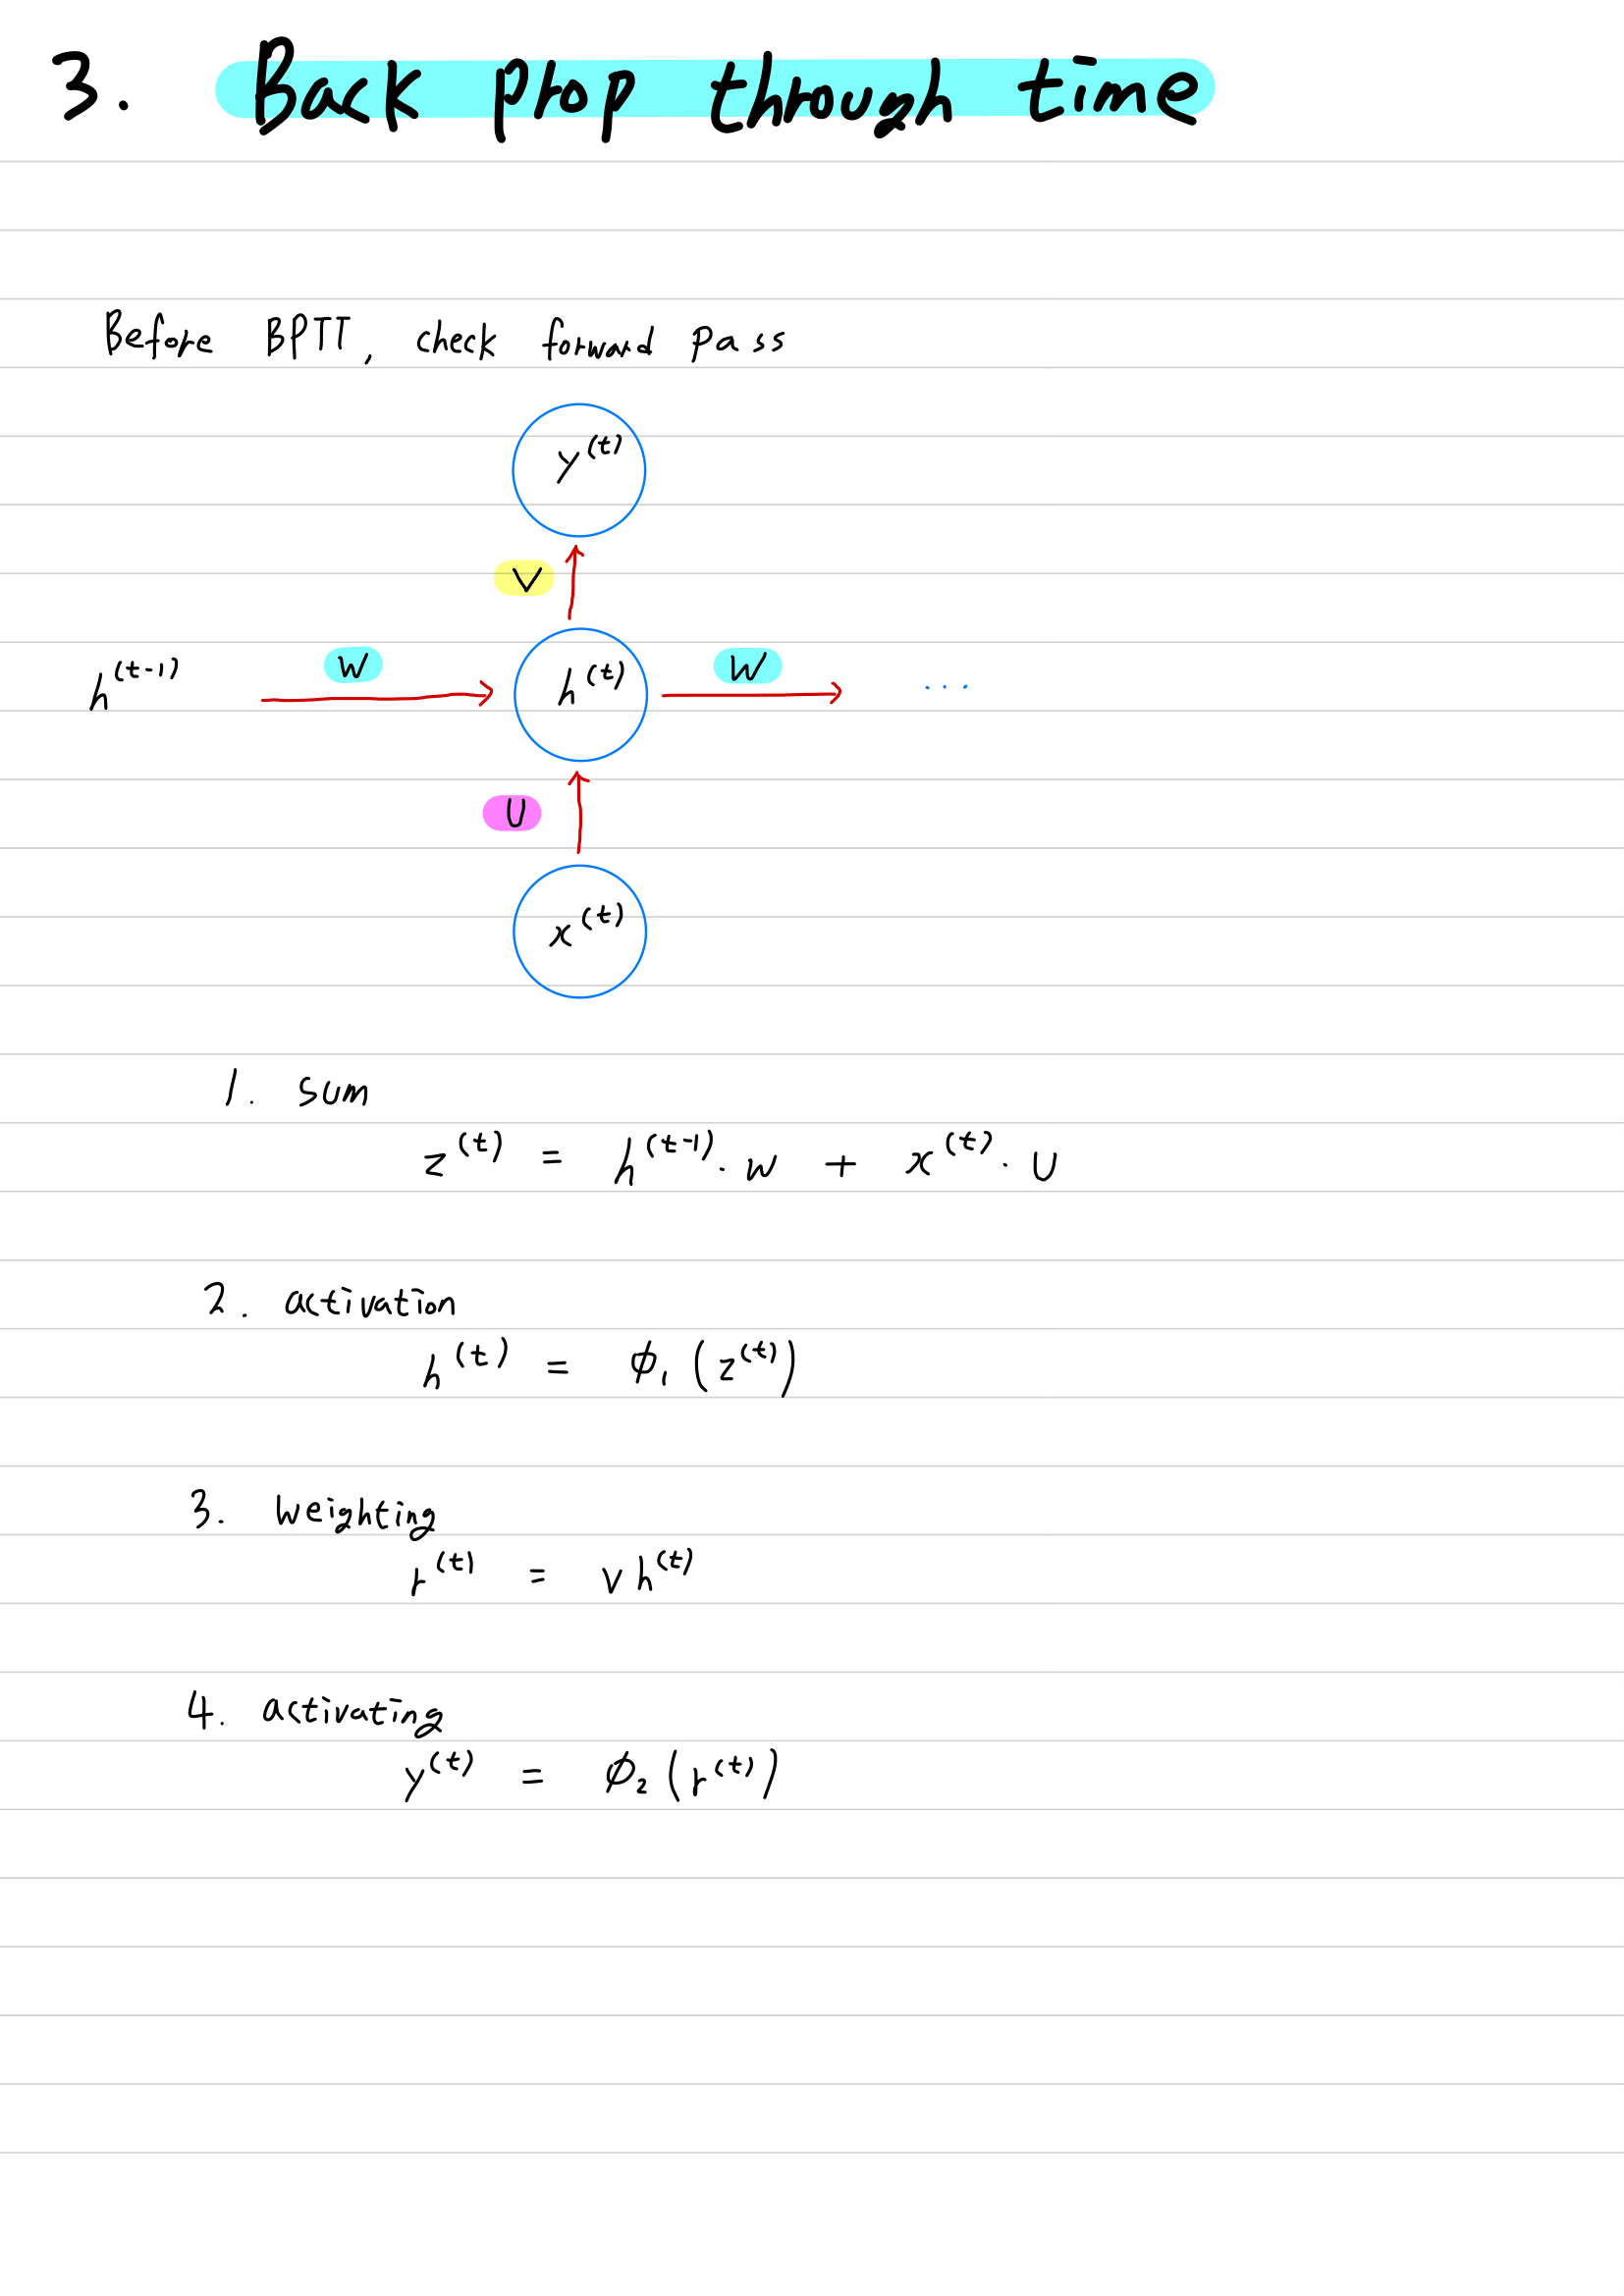 3. Back prop through time
Before BPTT, check forward pass
y^(t)
V
h^(t-1) W h^(t) W ...
U
x^(t)
1. sum
z^(t) = h^(t-1) · W + x^(t) · U
2. activation
h^(t) = φ₁ (z^(t))
3. Weighting
r^(t) = V h^(t)
4. activating
y^(t) = φ₂ (r^(t))